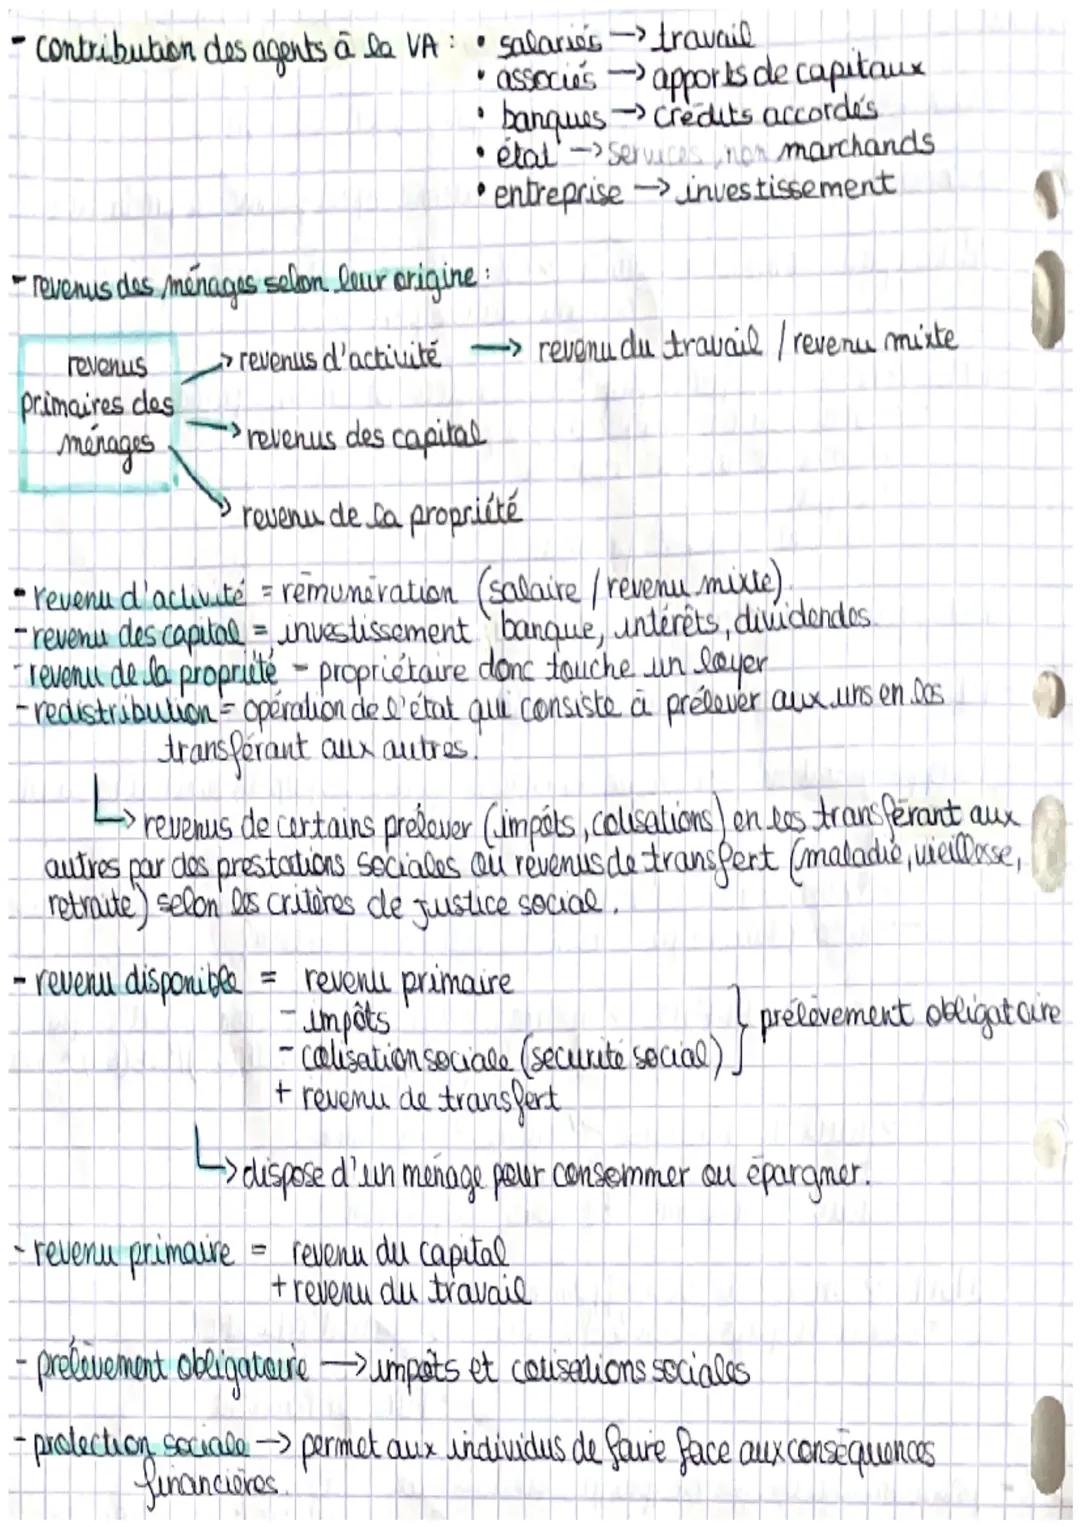 - contribution des agents à la VA : • salariés → travail
• associés → apports de capitaux
• banques → crédits accordés
• état → services non marchands
• entreprise → investissement
- revenus des ménages selon leur origine :
revenus primaires des ménages
→ revenus d'activité → revenu du travail / revenu mixte
→ revenus des capital
→ revenu de la propriété
- revenu d'activité = rémunération (salaire / revenu mixte)
- revenu des capital = investissement banque, intérêts, dividendes
- revenu de la propriété - propriétaire donc touche un loyer
- redistribution = opération de l'état qui consiste à prélever aux uns en les
transférant aux autres.
↳ revenus de certains prélever (impôts, cotisations) en les transférant aux
autres par des prestations sociales ou revenus de transfert (maladie, vieillesse,
retraite) selon les critères de justice social.
- revenu disponible = revenu primaire
- impôts
- cotisation sociale (sécurité social) } prélèvement obligatoire
+ revenu de transfert
↳ dispose d'un ménage pour consommer ou épargner.
- revenu primaire = revenu du capital
+ revenu du travail
- prélèvement obligatoire → impôts et cotisations sociales
- protection sociale → permet aux individus de faire face aux conséquences
financières.